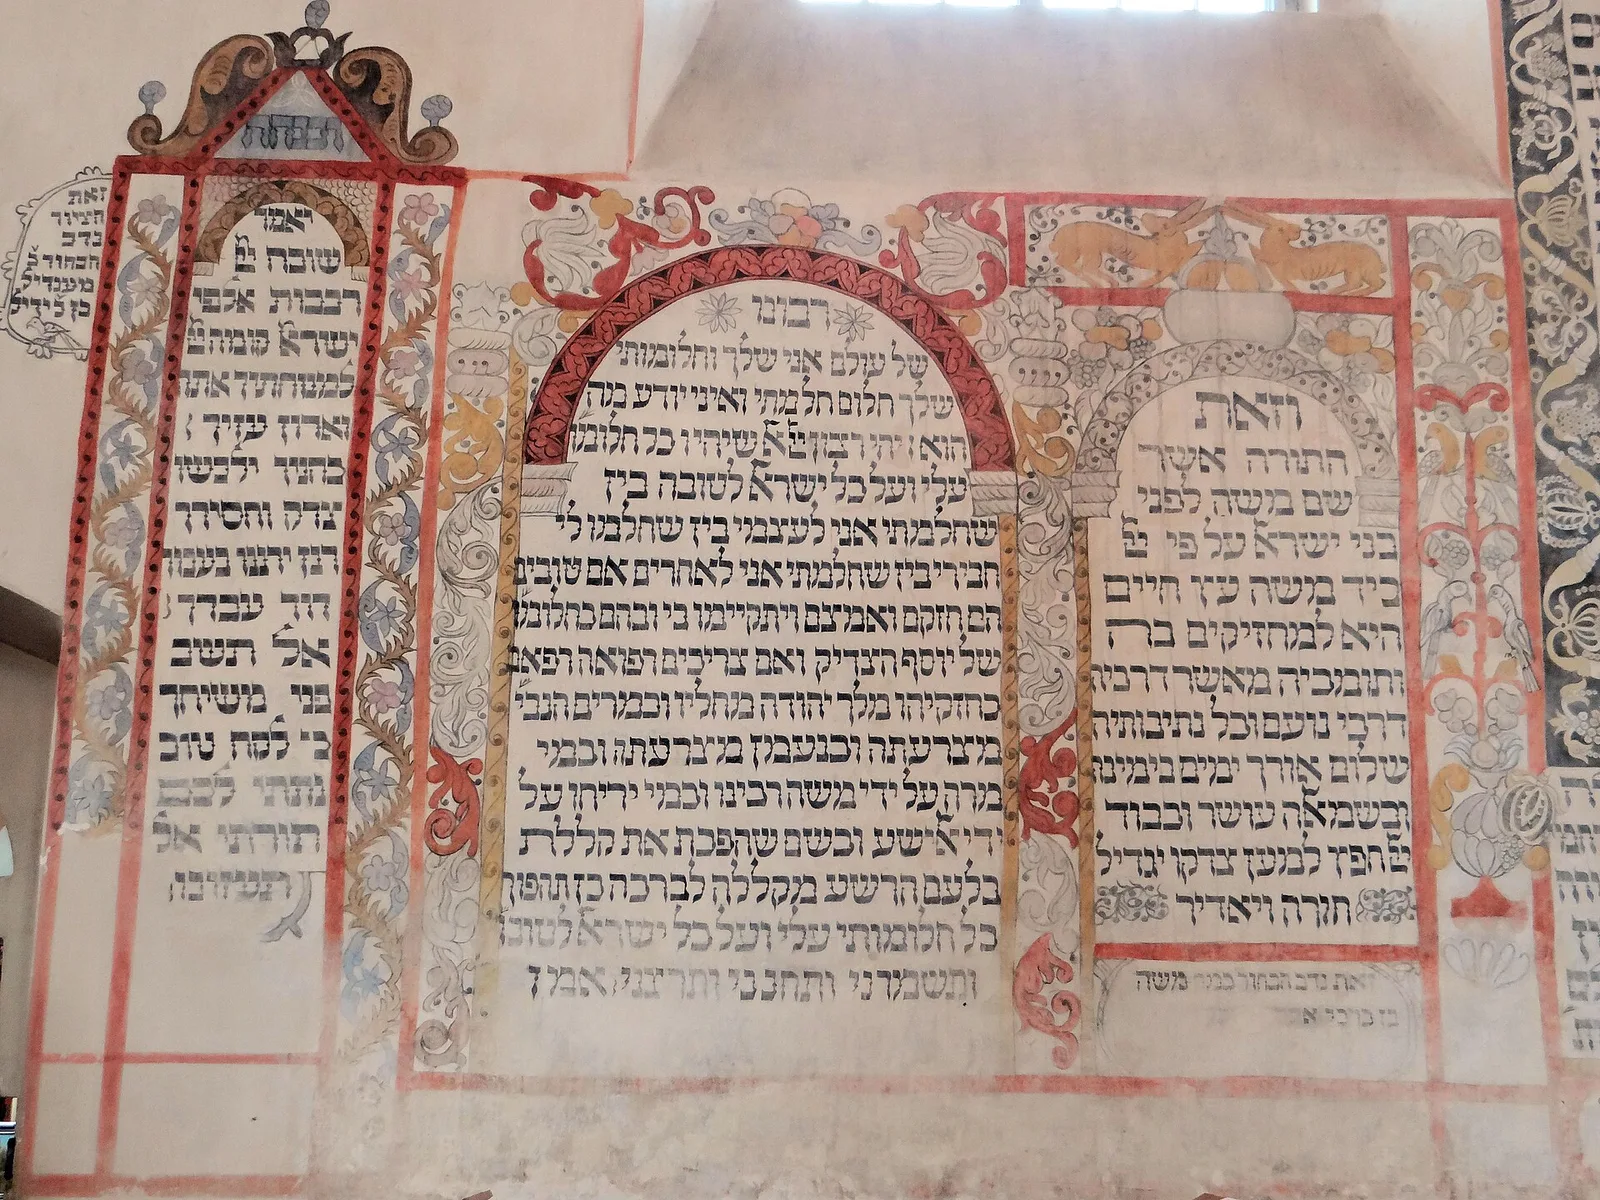 וזאת
התורה אשר
שם משה לפני
בני ישראל על פי
ביד משה עץ חיים
היא למחזיקים בה
ותומכיה מאשר דרכיה
דרכי נועם וכל נתיבותיה
שלום אורך ימים בימינה
ובשמאלה עושר וכבוד
חפץ למען צדקו יגדיל
תורה ויאדיר
זאת נדב הבחור משה
רבונו
של עולם אני שלך וחלומותי
שלך חלום חלמתי ואיני יודע מה
הוא יהי רצון שיהיו כל חלומתי
עלי ועל כל ישראל לטובה בין
שחלמתי אני לעצמי בין שחלמו לי
חבירי בין שחלמתי אני לאחרים אם טובים
הם חזקם ואמצם ויתקיימו בי ובהם כחלומתיו
של יוסף הצדיק ואם צריכים רפואה רפאם
כחזקיהו מלך יהודה מחליו וכמרים הנביאה
מצרעתה וכנעמן מצרעתו וכמי
מרה על ידי משה רבינו וכמי יריחו על
ידי אלישע וכשם שהפכת את קללת
בלעם הרשע מקללה לברכה כן תהפוך
כל חלומותי עלי ועל כל ישראל לטובה
ותשמרני ותחנני ותרצני אמן
ויאמר
שובה
רבבות אלפי
ישראל קומה
למנוחתיך אתה
וארון עזיך
כהניך ילבשו
צדק וחסידיך
רנן ירננו בעבור
דוד עבדך
אל תשב
פני משיחך
כי לקח טוב
נתתי לכם
תורתי אל
תעזובו
זאת
הציור
נדב
הבחור